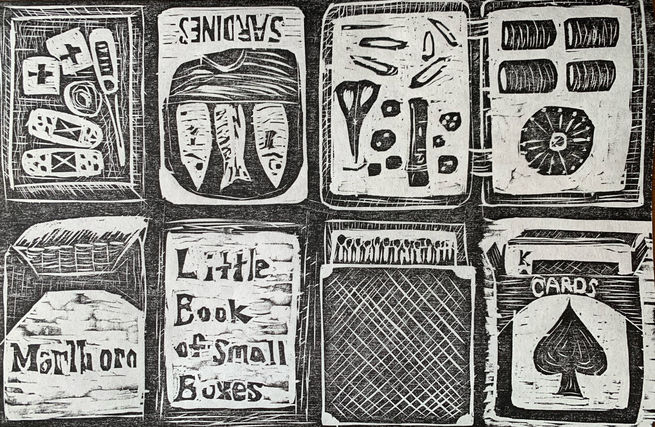 SARDINES
Marlboro
Little
Book
of Small
Boxes
K
CARDS